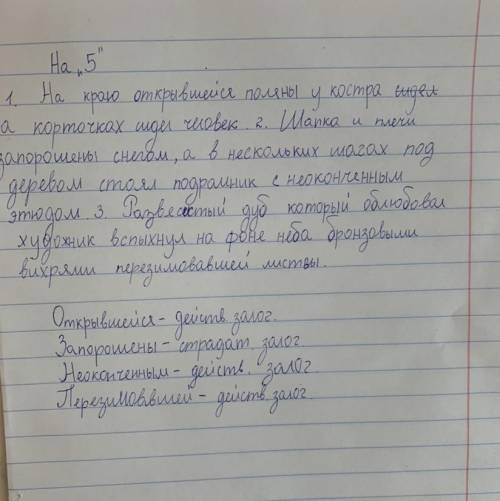 На „5"
1. На краю открывшейся поляны у костра сидел
а корточках сидел человек. 2. Шапка и плечи
запорошены снегом, а в нескольких шагах под
деревом стоял подрамник с неоконченным
этюдом. 3. Развесистый дуб который облюбовал
художник вспыхнул на фоне неба бронзовыми
вихрями перезимовавшей листвы.
Открывшейся - действ. залог.
Запорошены - страдат. залог.
Неоконченным - действ. залог
Перезимовавшей - действ. залог.